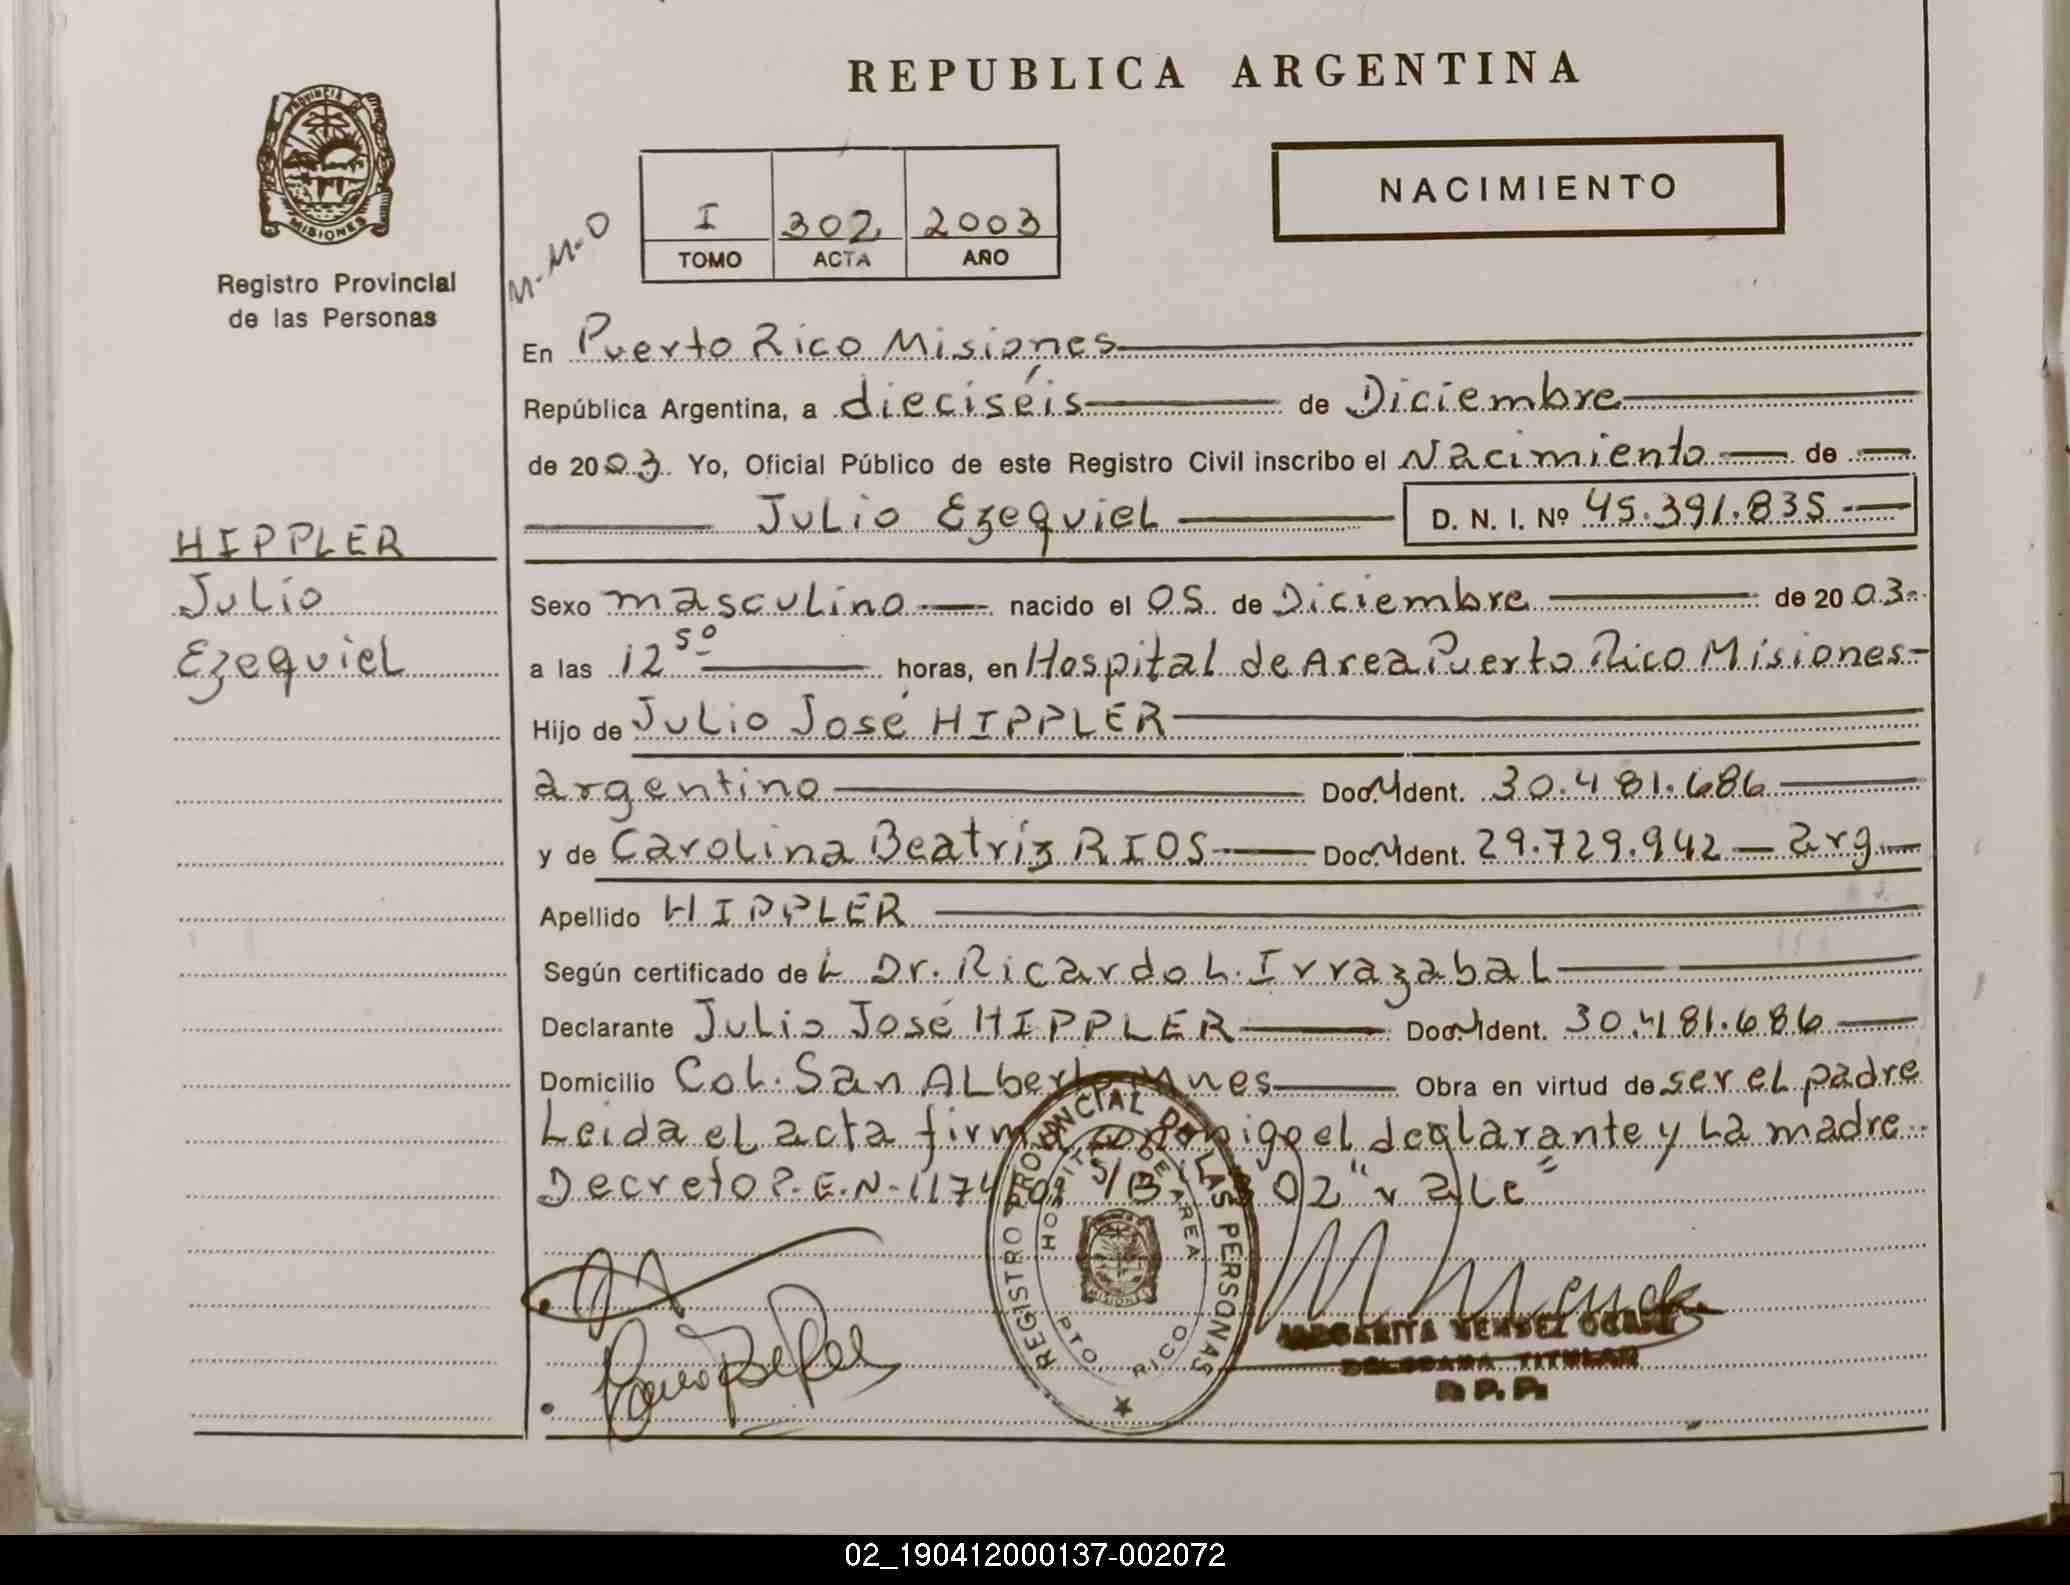 REPUBLICA ARGENTINA
PROVINCIA DE
MISIONES
Registro Provincial
de las Personas
NACIMIENTO
M-M-O
I 302 2003
TOMO ACTA AÑO
En Puerto Rico Misiones
República Argentina, a dieciséis de Diciembre
de 2003 Yo, Oficial Público de este Registro Civil inscribo el Nacimiento de
Julio Ezequiel D. N. I. Nº 45.391.835
HIPPLER
Julio
Ezequiel
Sexo masculino nacido el 05 de Diciembre de 2003
a las 12 50 horas, en Hospital de Area Puerto Rico Misiones
Hijo de Julio José HIPPLER
argentino Doc. Ident. 30.481.686
y de Carolina Beatríz RIOS Doc. Ident. 29.729.942 arg
Apellido HIPPLER
Según certificado de L Dr. Ricardo L. Irrazabal
Declarante Julio José HIPPLER Doc. Ident. 30.481.686
Domicilio Col. San Alberto Mnes Obra en virtud de ser el padre
Leida el acta firma conmigo el declarante y La madre
Decreto P.E.N. 1174 02 "vale"
REGISTRO PROVINCIAL DE LAS PERSONAS
HOSPITAL DE AREA
MISIONES
PTO. RICO
MARGARITA MENDEZ
DELEGADA TITULAR
R.P.P.
02_190412000137-002072